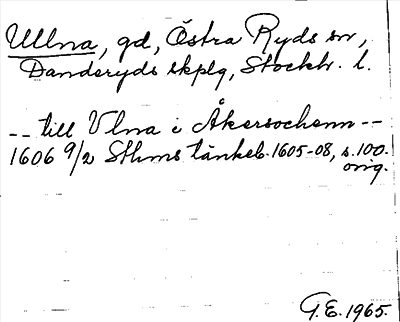 Ullna, gd, Östra Ryds sn,
Danderyds skplg, Stockh. l.
-- till Vlna i Åkersochenn --
1606 9/2 Sthms tänkeb. 1605-08, s. 100.
orig.
G.E. 1965.